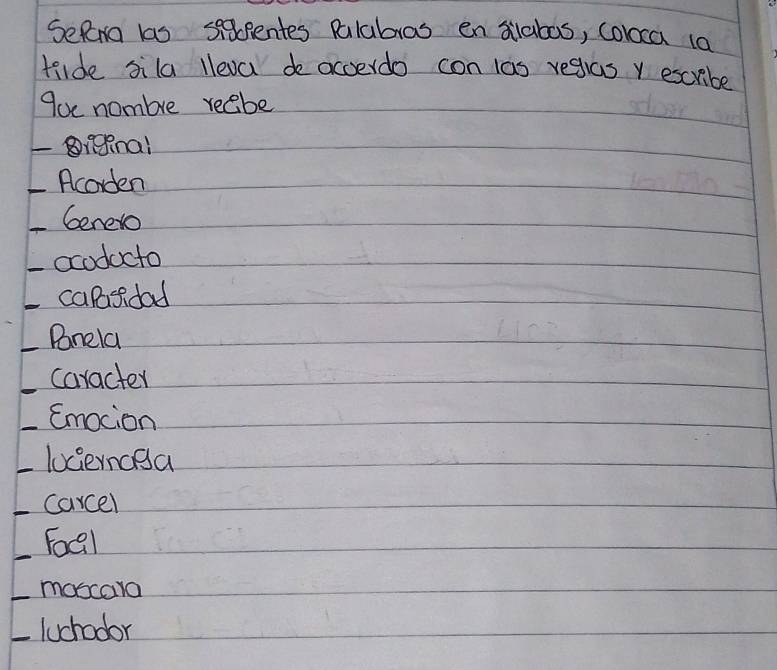 Separa las siguientes Palabras en silabas, coloca la
tilde si la lleva de acuerdo con las reglas y escribe
que nombre recibe
- Original
- Acorden
- Genero
- acoducto
- capasidad
- Panela
- caracter
- Emocion
- luciernaga
- carcel
- Facil
- mascara
- luchador